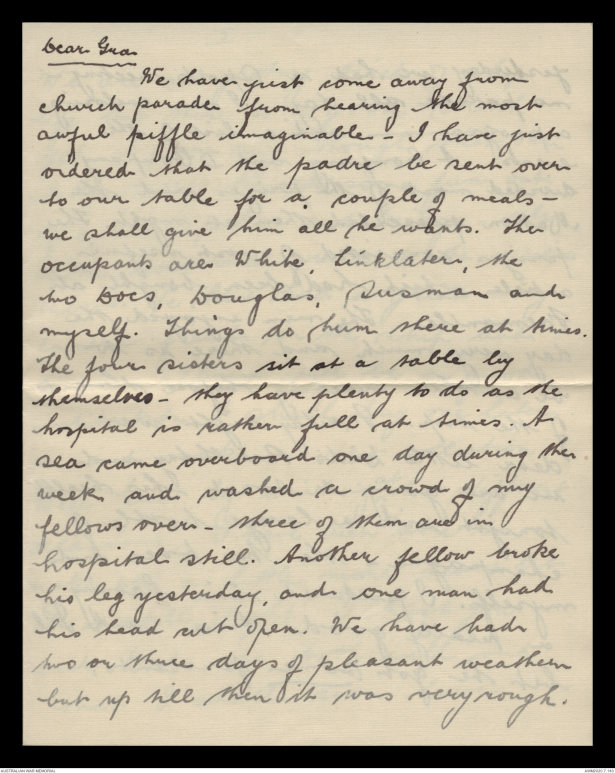 Dear Gra
We have just come away from
church parade from hearing the most
awful piffle imaginable - I have just
ordered that the padre be sent over
to our table for a couple of meals -
we shall give him all he wants. The
occupants are White, Linklater, the
two Docs, Douglas, Susman and
myself. Things do hum there at times.
The four sisters sit at a table by
themselves - they have plenty to do as the
hospital is rather full at times. A
sea came overboard one day during the
week and washed a crowd of my
fellows over - three of them are in
hospital still. Another fellow broke
his leg yesterday, and one man had
his head cut open. We have had
two or three days of pleasant weather
but up till then it was very rough.
AUSTRALIAN WAR MEMORIAL